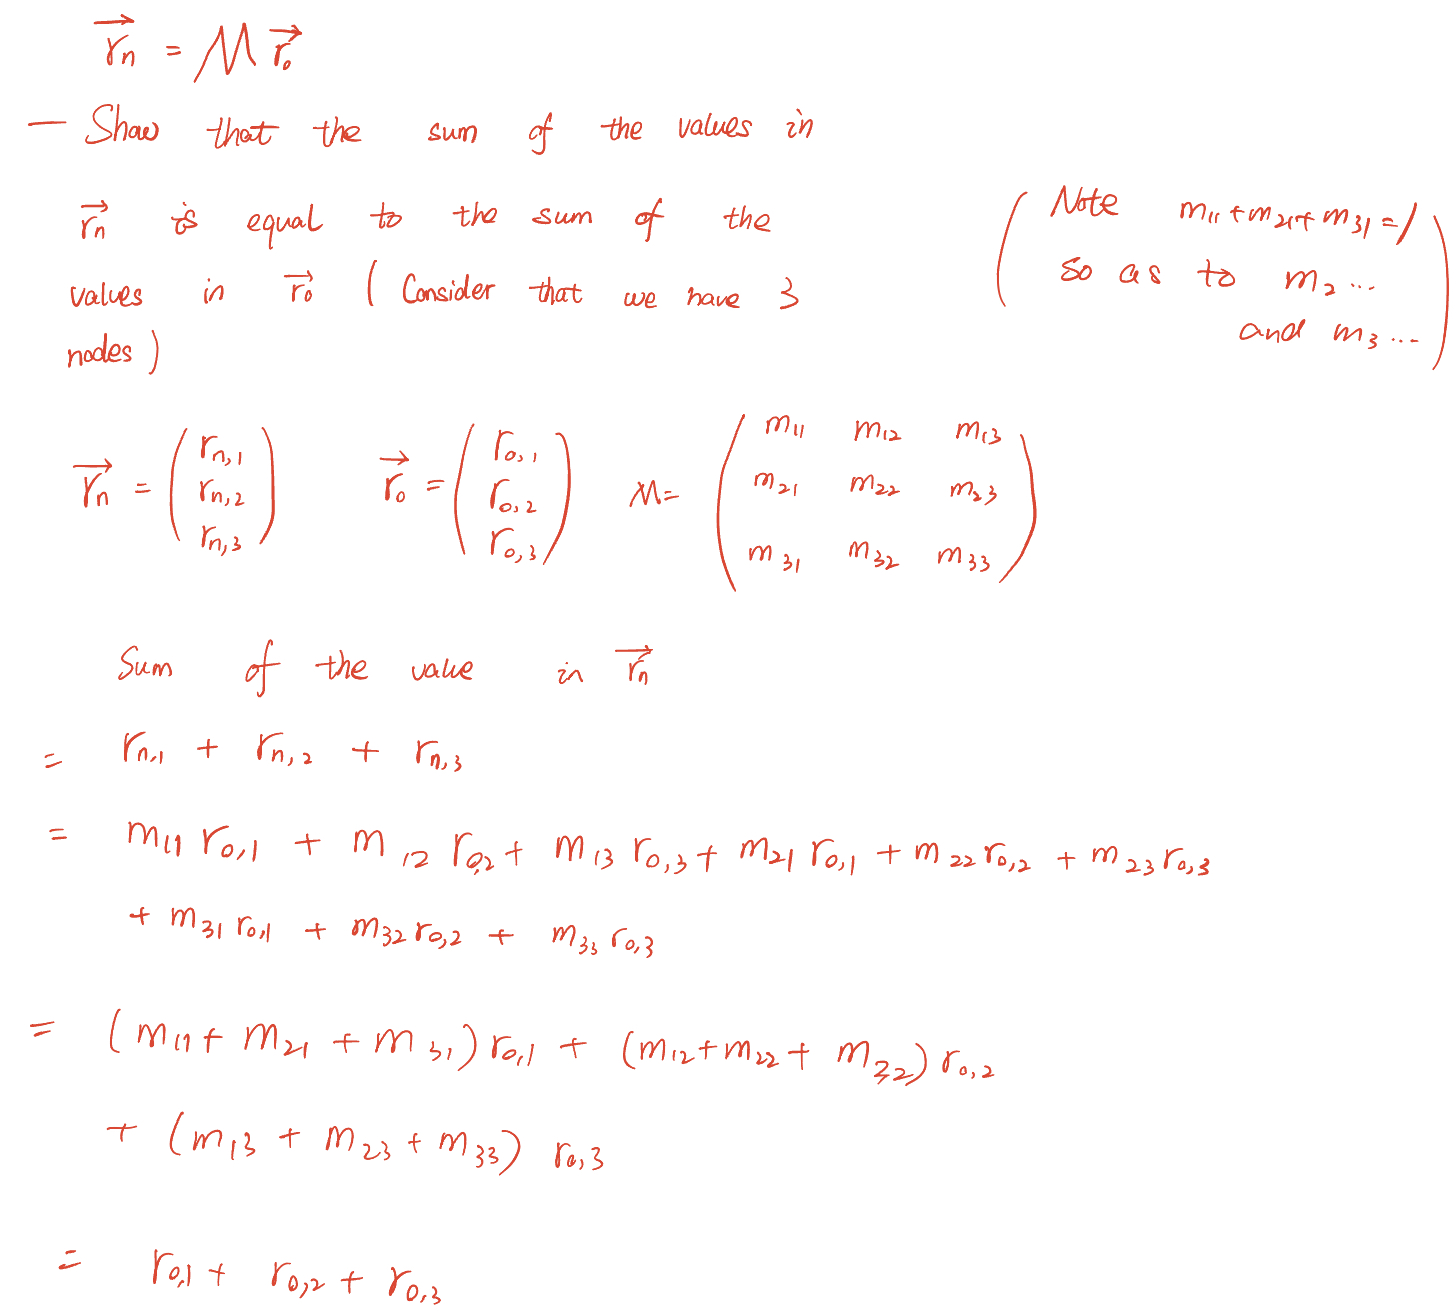 $\overrightarrow{r_n} = M \overrightarrow{r_0}$
— Show that the sum of the values in
$\overrightarrow{r_n}$ is equal to the sum of the
values in $\overrightarrow{r_0}$ ( Consider that we have 3
nodes )
( Note $m_{11} + m_{21} + m_{31} = 1$
so as to $m_{2} \dots$
and $m_{3} \dots$ )
$\overrightarrow{r_n} = \begin{pmatrix} r_{n,1} \\ r_{n,2} \\ r_{n,3} \end{pmatrix}$ $\overrightarrow{r_0} = \begin{pmatrix} r_{0,1} \\ r_{0,2} \\ r_{0,3} \end{pmatrix}$ $M = \begin{pmatrix} m_{11} & m_{12} & m_{13} \\ m_{21} & m_{22} & m_{23} \\ m_{31} & m_{32} & m_{33} \end{pmatrix}$
Sum of the value in $\overrightarrow{r_n}$
$= r_{n,1} + r_{n,2} + r_{n,3}$
$= m_{11} r_{0,1} + m_{12} r_{0,2} + m_{13} r_{0,3} + m_{21} r_{0,1} + m_{22} r_{0,2} + m_{23} r_{0,3}$
$+ m_{31} r_{0,1} + m_{32} r_{0,2} + m_{33} r_{0,3}$
$= (m_{11} + m_{21} + m_{31}) r_{0,1} + (m_{12} + m_{22} + m_{32}) r_{0,2}$
$+ (m_{13} + m_{23} + m_{33}) r_{0,3}$
$= r_{0,1} + r_{0,2} + r_{0,3}$